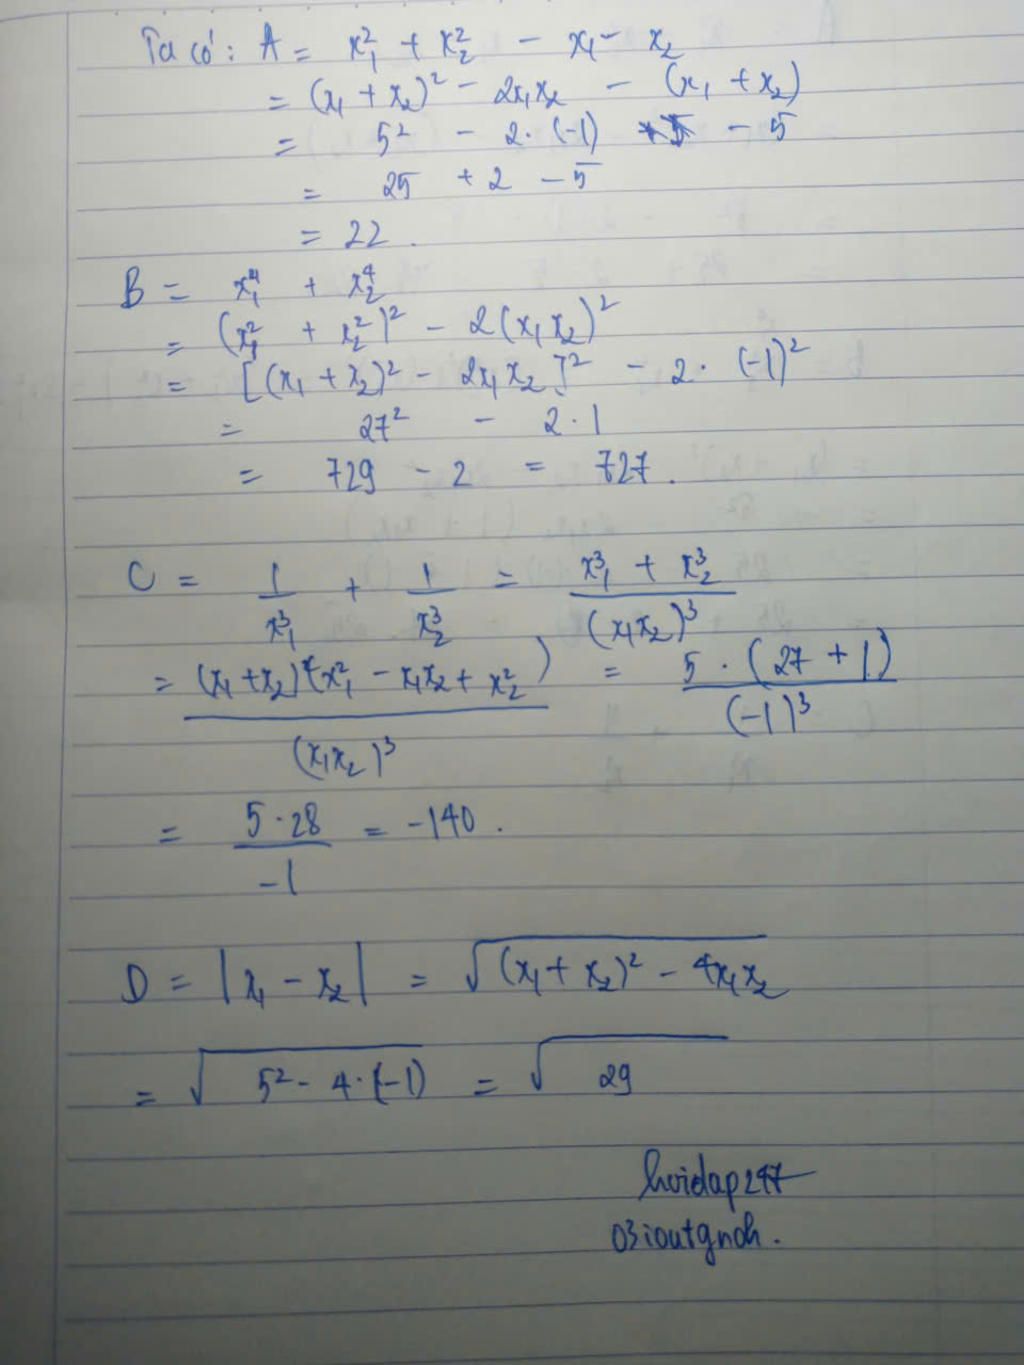 Ta có: A = x₁² + x₂² - x₁ - x₂
= (x₁ + x₂)² - 2x₁x₂ - (x₁ + x₂)
= 5² - 2·(-1) - 5
= 25 + 2 - 5
= 22.
B = x₁⁴ + x₂⁴
= (x₁² + x₂²)² - 2(x₁x₂)²
= [(x₁ + x₂)² - 2x₁x₂]² - 2·(-1)²
= 27² - 2·1
= 729 - 2 = 727.
C = 1/x₁³ + 1/x₂³ = (x₁³ + x₂³)/(x₁x₂)³
= (x₁ + x₂)(x₁² - x₁x₂ + x₂²)/(x₁x₂)³ = 5·(27 + 1)/(-1)³
= 5·28/-1 = -140.
D = |x₁ - x₂| = √(x₁ + x₂)² - 4x₁x₂
= √5² - 4·(-1) = √29
hoidap247
03ioutgnoh.